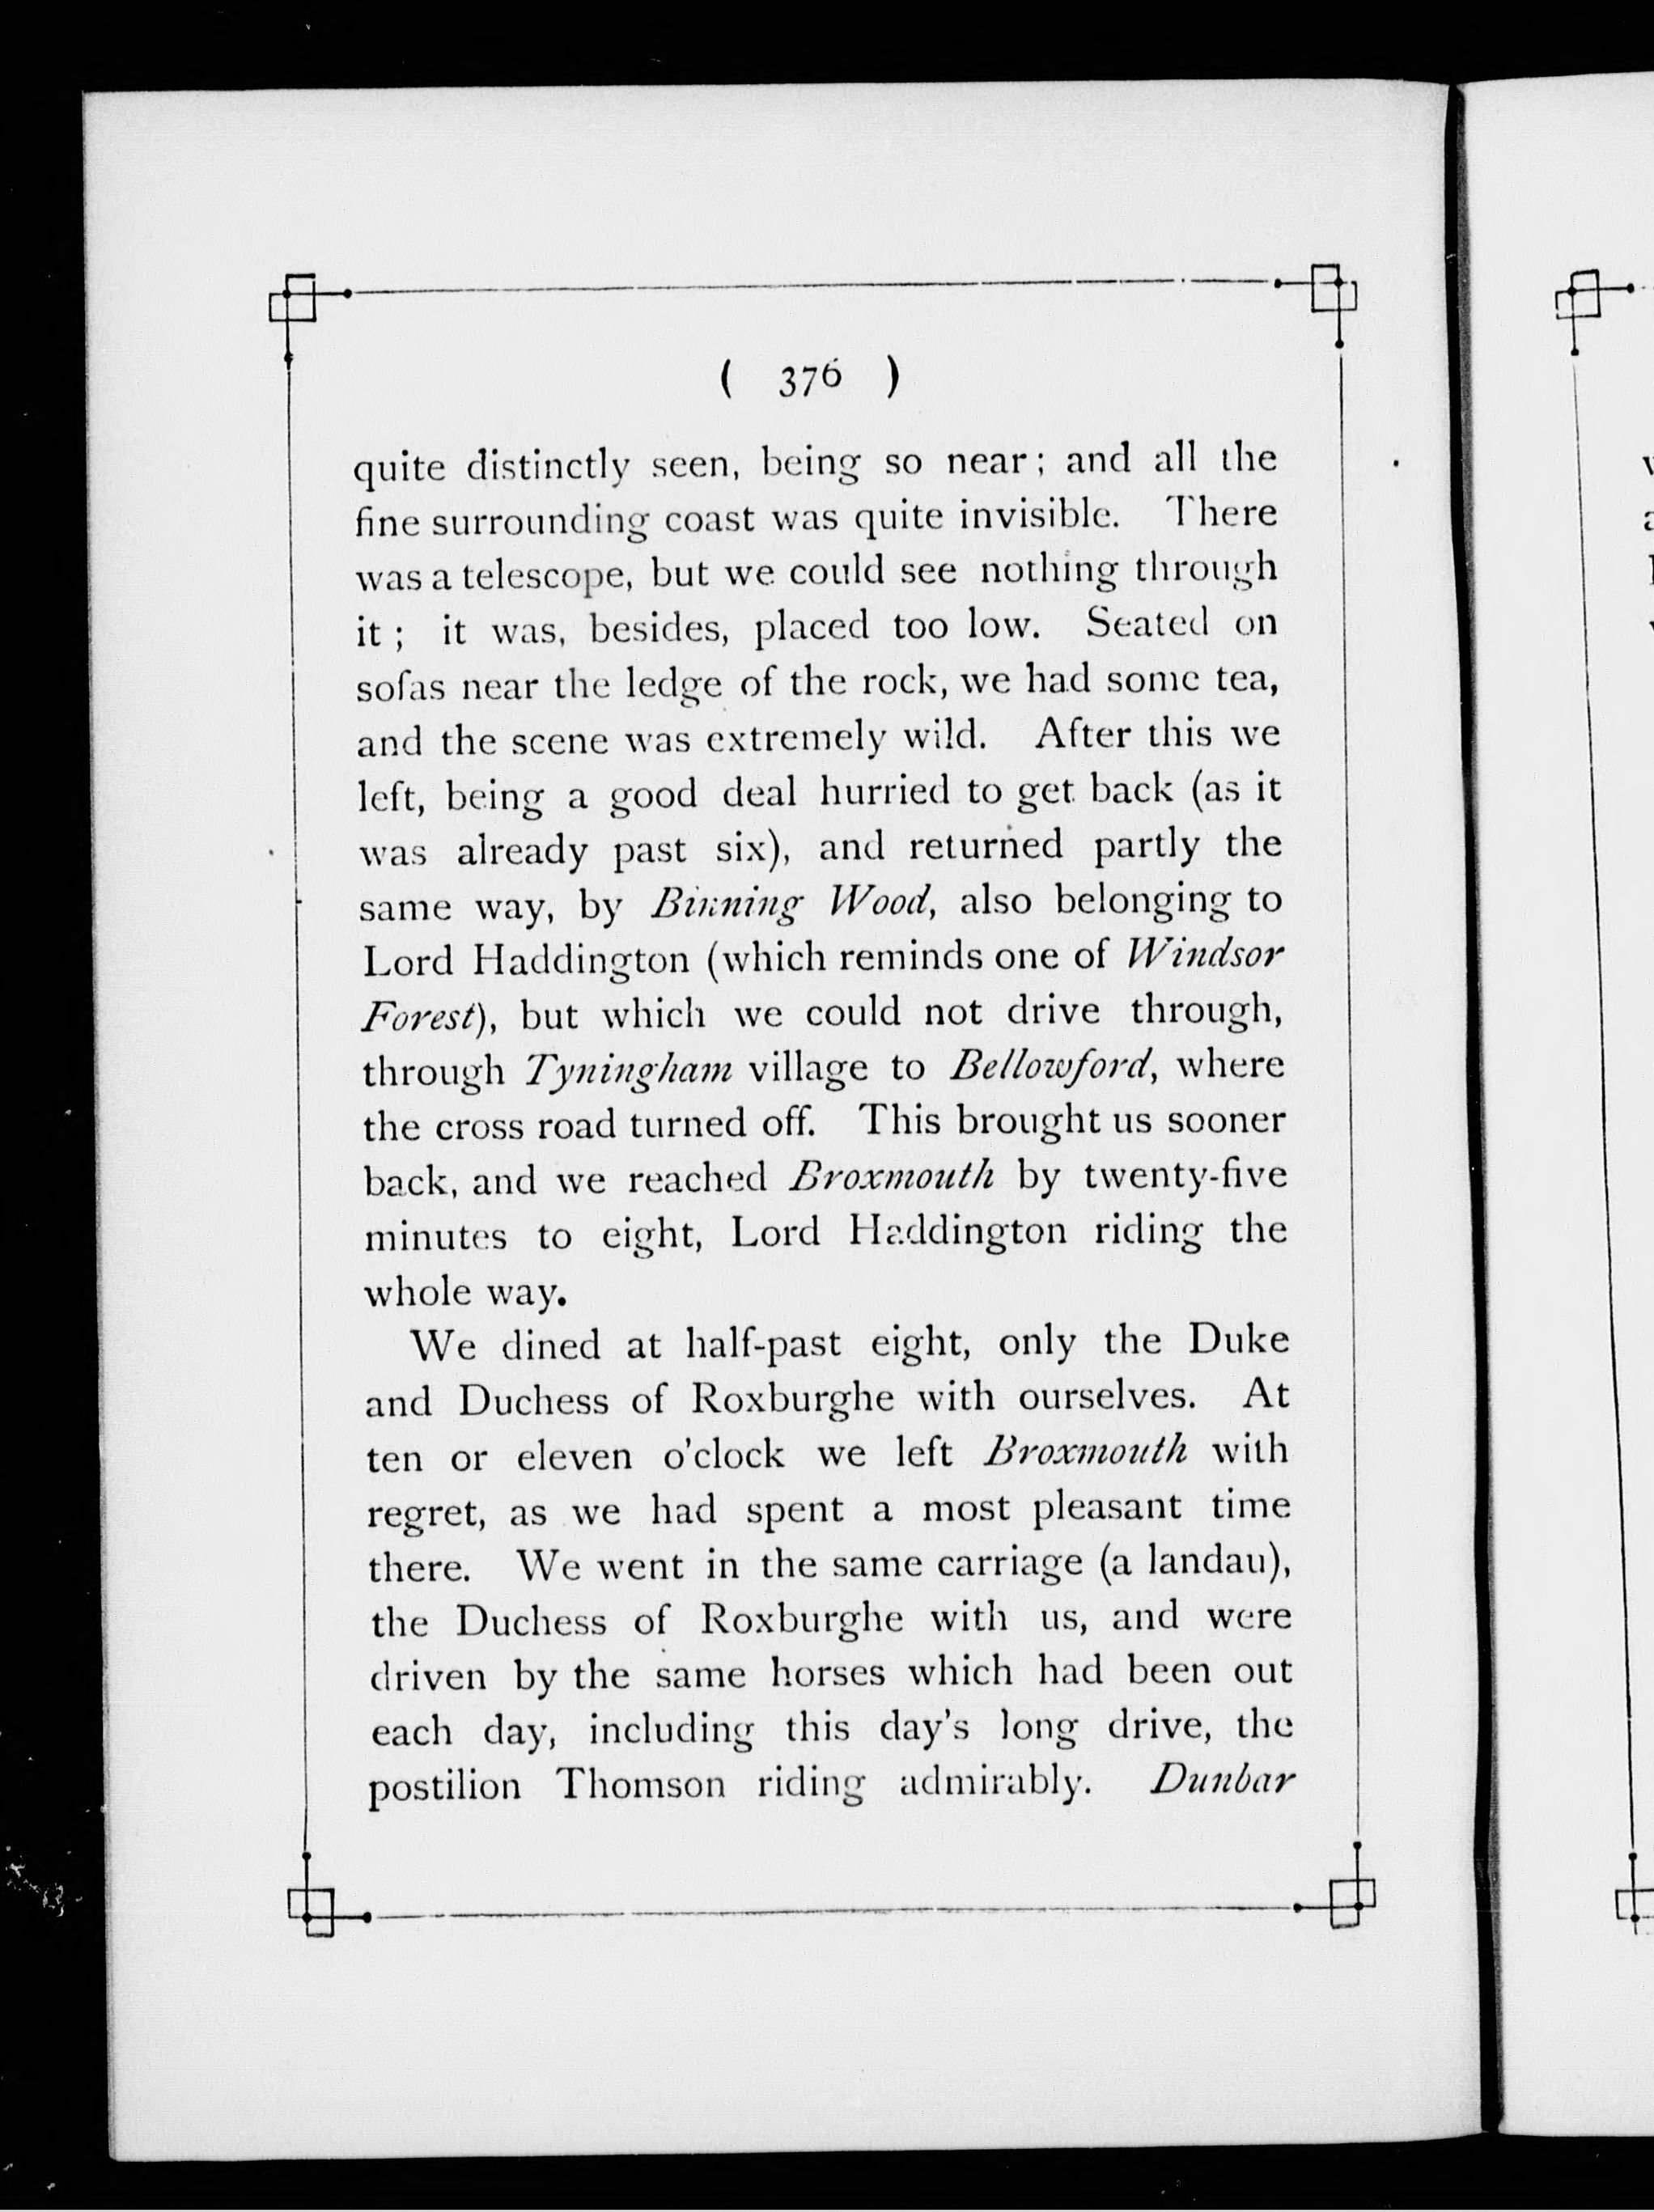 ( 376 )
quite distinctly seen, being so near; and all the
fine surrounding coast was quite invisible. There
was a telescope, but we could see nothing through
it; it was, besides, placed too low. Seated on
sofas near the ledge of the rock, we had some tea,
and the scene was extremely wild. After this we
left, being a good deal hurried to get back (as it
was already past six), and returned partly the
same way, by Binning Wood, also belonging to
Lord Haddington (which reminds one of Windsor
Forest), but which we could not drive through,
through Tyningham village to Bellowford, where
the cross road turned off. This brought us sooner
back, and we reached Broxmouth by twenty-five
minutes to eight, Lord Haddington riding the
whole way.
We dined at half-past eight, only the Duke
and Duchess of Roxburghe with ourselves. At
ten or eleven o'clock we left Broxmouth with
regret, as we had spent a most pleasant time
there. We went in the same carriage (a landau),
the Duchess of Roxburghe with us, and were
driven by the same horses which had been out
each day, including this day's long drive, the
postilion Thomson riding admirably. Dunbar